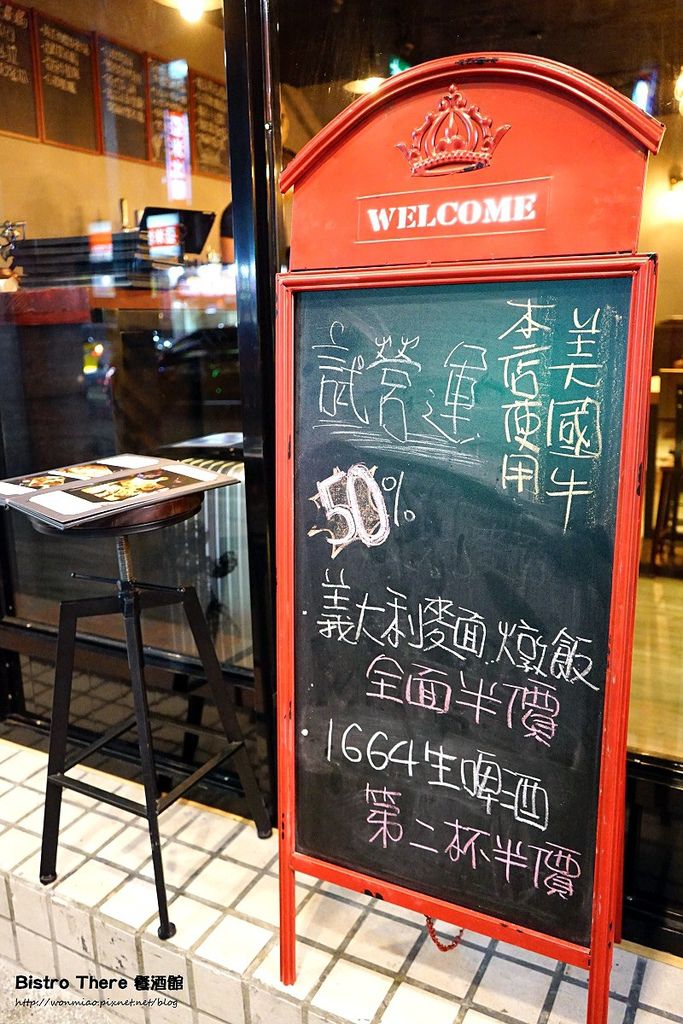 WELCOME
美國牛
本店使用
試營運
50%
義大利麵.燉飯
全面半價
1664生啤酒
第二杯半價
Bistro There 餐酒館
http://wonmiao.pixnet.net/blog